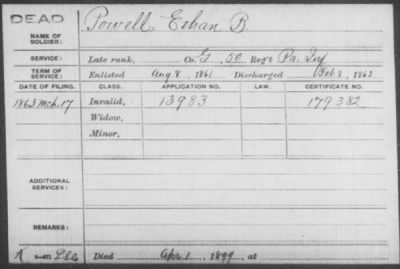 DEAD
NAME OF SOLDIER: Powell, Ethan B.
SERVICE: Late rank, Co. G, 50 Reg't Pa. Inf
TERM OF SERVICE: Enlisted Aug 8, 1861 Discharged Feb 8, 1863
DATE OF FILING. CLASS. APPLICATION NO. LAW. CERTIFICATE NO.
1863 Mch. 17 Invalid, 13983 179382
Widow,
Minor,
ADDITIONAL SERVICES:
REMARKS:
Died Apr. 1, 1899, at